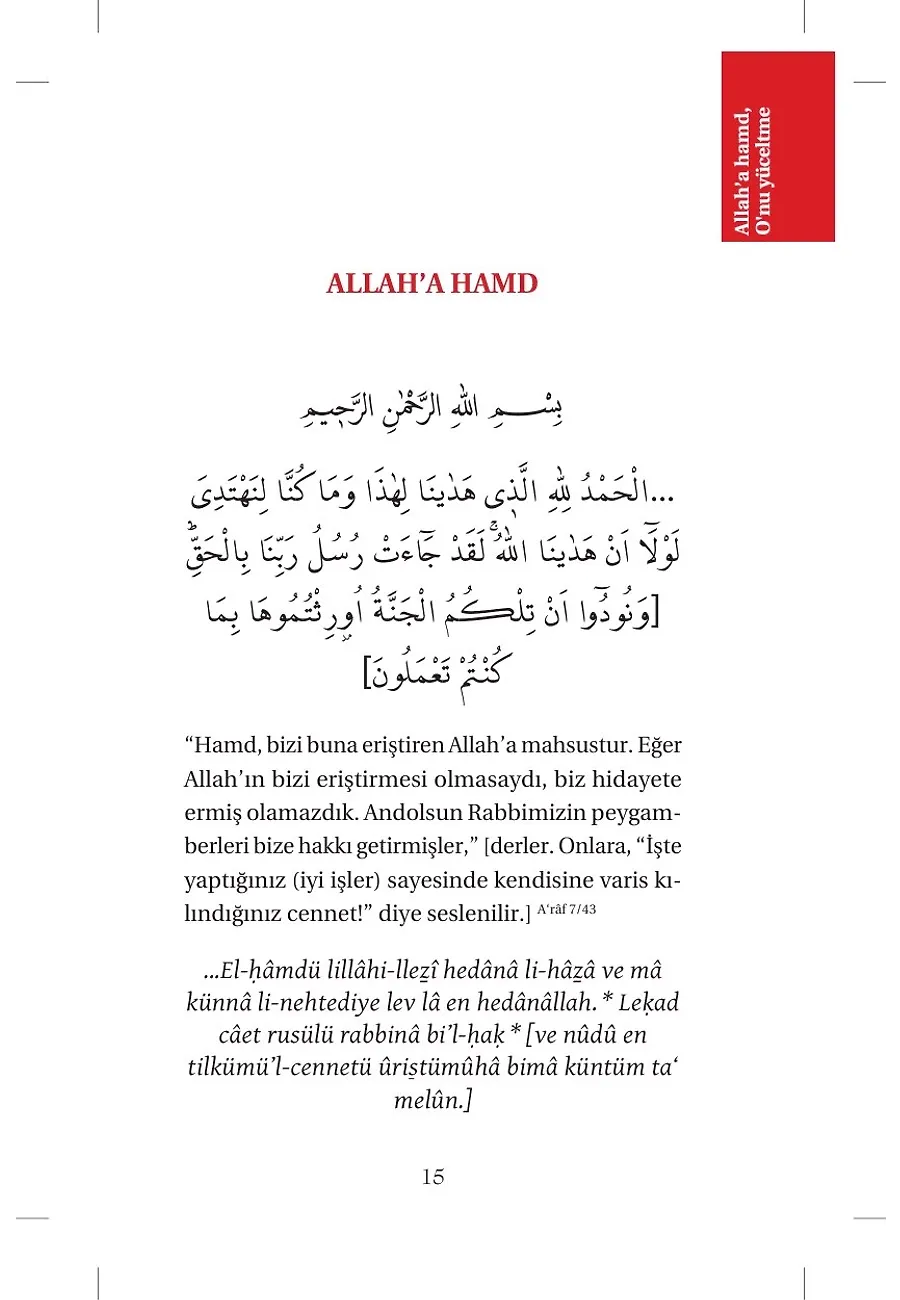 Allah’a hamd,
O'nu yüceltme
ALLAH’A HAMD
بِسْــــمِ اللهِ الرَّحْمٰنِ الرَّح۪يمِ
...الْحَمْدُ لِلهِ الَّذ۪ى هَدٰينَا لِهٰذَا وَمَا كُنَّا لِنَهْتَدِىَ
لَوْلَٓا اَنْ هَدٰينَا اللهُۚ لَقَدْ جَٓاءَتْ رُسُلُ رَبِّنَا بِالْحَقِّۜ
[وَنُودُٓوا اَنْ تِلْكُمُ الْجَنَّةُ اُو۫رِثْتُمُوهَا بِمَا
كُنْتُمْ تَعْمَلُونَ]
“Hamd, bizi buna eriştiren Allah’a mahsustur. Eğer
Allah’ın bizi eriştirmesi olmasaydı, biz hidayete
ermiş olamazdık. Andolsun Rabbimizin peygam-
berleri bize hakkı getirmişler,” [derler. Onlara, “İşte
yaptığınız (iyi işler) sayesinde kendisine varis kı-
lındığınız cennet!” diye seslenilir.] A‘râf 7/43
...El-ḥâmdü lillâhi-lleẕî hedânâ li-hâẕâ ve mâ
künnâ li-nehtediye lev lâ en hedânâllah. * Leḳad
câet rusülü rabbinâ bi’l-ḥaḳ * [ve nûdû en
tilkümü’l-cennetü ûris̱tümûhâ bimâ küntüm ta‘
melûn.]
15